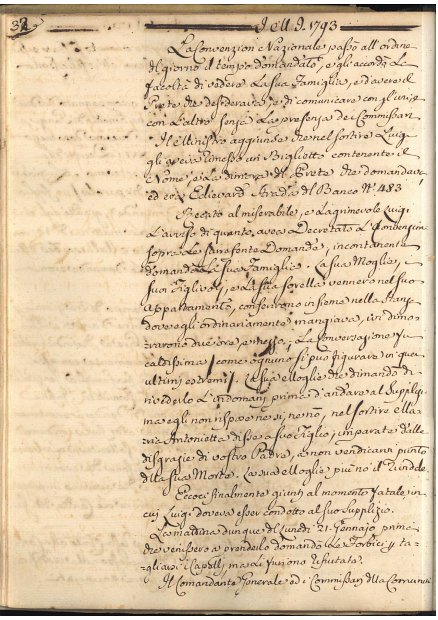 32
1793
La Convenzion Nazionale passò all'ordine
del giorno il tempo domandato, e gli accordò la
facoltà di vedere la sua Famiglia, ed avere il
Prete che desiderava, e di comunicare con gl'uni, e
con l'altro senza la presenza dei Commissarj
Il Ministro aggiunse che nel sortire Luigi
gli aveva rimesso un Biglietto contenente il
Nome, e la dimora del Prete che domandava
ed era Edievard Strada del Banco N.º 483
Recato al miserabile, e lagrimevole Luigi
l'avviso di quanto aveva Decretato la Convenzione
sopra le sarafonte Domande, incontanente
domandò la sua Famiglia. La sua Moglie, i
suoi Figlivoli, e la sua sorella vennero nel suo
Appartamento, conferirono insieme nella stanza
dove egli ordinariamente mangiava, ivi dimo-
rarono due ore, e mezza; La Conversazione fu
caldissima, come ognuno si può figurare in quei
ultimi estremi. La sua Moglie che dimandò di
rivederlo l'indomani prima d'andare al Supplizio
ma egli non rispose ne si, ne nò, nel sortire Ma-
ria Antonietta disse a suo Figlio; imparate dalle
disgrazie di vostro Padre, e non vendicarvi punto
della sua Morte. La sua Moglie più no'l vidde.
Eccoci finalmente giunti al momento fatale, in
cui Luigi doveva esser condotto al suo Supplizio.
La mattina dunque del Lunedì 21. Gennajo prima
che venissero a prenderlo domandò le Forbici p ta-
gliarsi i Capelli, ma li furono rifiutate.
Il Comandante Generale ed i Commissarj della Comunità